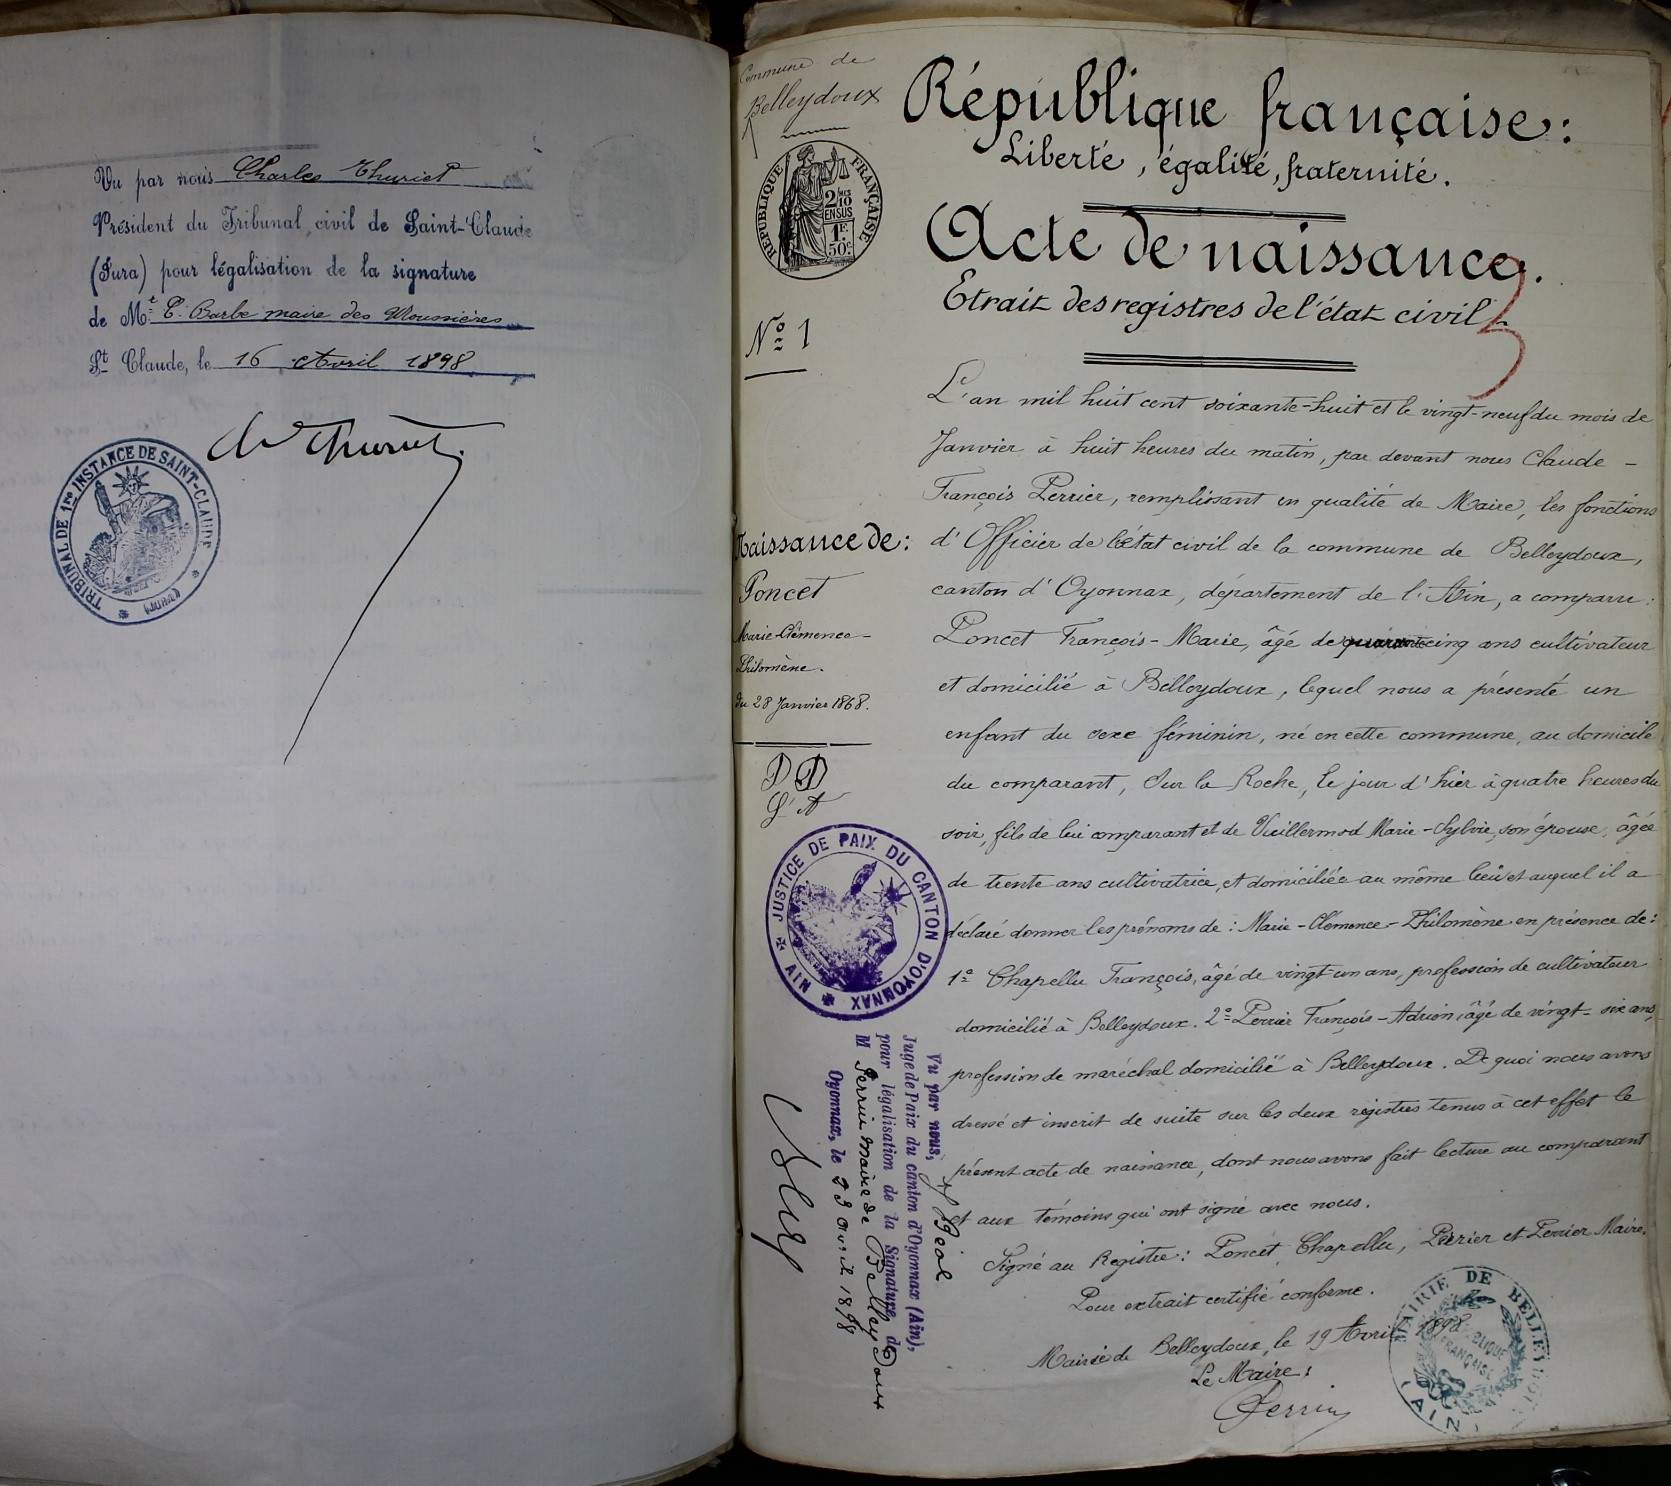 Vu par nous Charles Thuriet
Président du Tribunal civil de Saint-Claude
(Jura) pour légalisation de la signature
de Mr. E. Barbe maire des Moussières
St Claude, le 16 Avril 1898
Ch Thuriet.
TRIBUNAL DE 1re INSTANCE DE SAINT-CLAUDE (JURA)
Commune de
Belleydoux
RÉPUBLIQUE FRANÇAISE
2/10 ENSUS
1F. 50c.
No 1
Naissance de:
Poncet
Marie-Clémence-
Philomène.
du 28 Janvier 1868.
JUSTICE DE PAIX DU CANTON D'OYONNAX AIN
Vu par nous,
Juge de Paix du canton d'Oyonnax (Ain),
pour légalisation de la Signature de
M Perrin maire de Belleydoux
Oyonnax, le 23 avril 1898
République française:
Liberté, égalité, fraternité.
Acte de naissance.
Etrait des registres de l'état civil
L'an mil huit cent soixante-huit et le vingt-neuf du mois de
Janvier à huit heures du matin, par devant nous Claude-
François Perrier, remplissant en qualité de Maire, les fonctions
d'Officier de l'état civil de la commune de Belleydoux,
canton d'Oyonnax, département de l'Ain, a comparu:
Poncet François-Marie, âgé de quarante cinq ans cultivateur
et domicilié à Belleydoux, lequel nous a présenté un
enfant du sexe féminin, né en cette commune, au domicile
du comparant, Sur la Roche, le jour d'hier à quatre heures du
soir, fils de lui comparant et de Vuillermod Marie-Sylvie, son épouse, âgée
de trente ans cultivatrice, et domiciliée au même lieu et auquel il a
déclaré donner les prénoms de: Marie-Clémence-Philomène en présence de:
1o Chapellu François, âgé de vingt-un ans, profession de cultivateur
domicilié à Belleydoux. 2o Perrier François-Adrien, âgé de vingt-six ans,
profession de maréchal domicilié à Belleydoux. De quoi nous avons
dressé et inscrit de suite sur les deux registres tenus à cet effet le
présent acte de naissance, dont nous avons fait lecture au comparant
et aux témoins qui ont signé avec nous.
Signé au Registre: Poncet, Chapellu, Perrier et Perrier Maire.
Pour extrait certifié conforme.
Mairie de Belleydoux, le 19 Avril 1898
Le Maire:
Perrin
MAIRIE DE BELLEYDOUX (AIN)
RÉPUBLIQUE FRANÇAISE